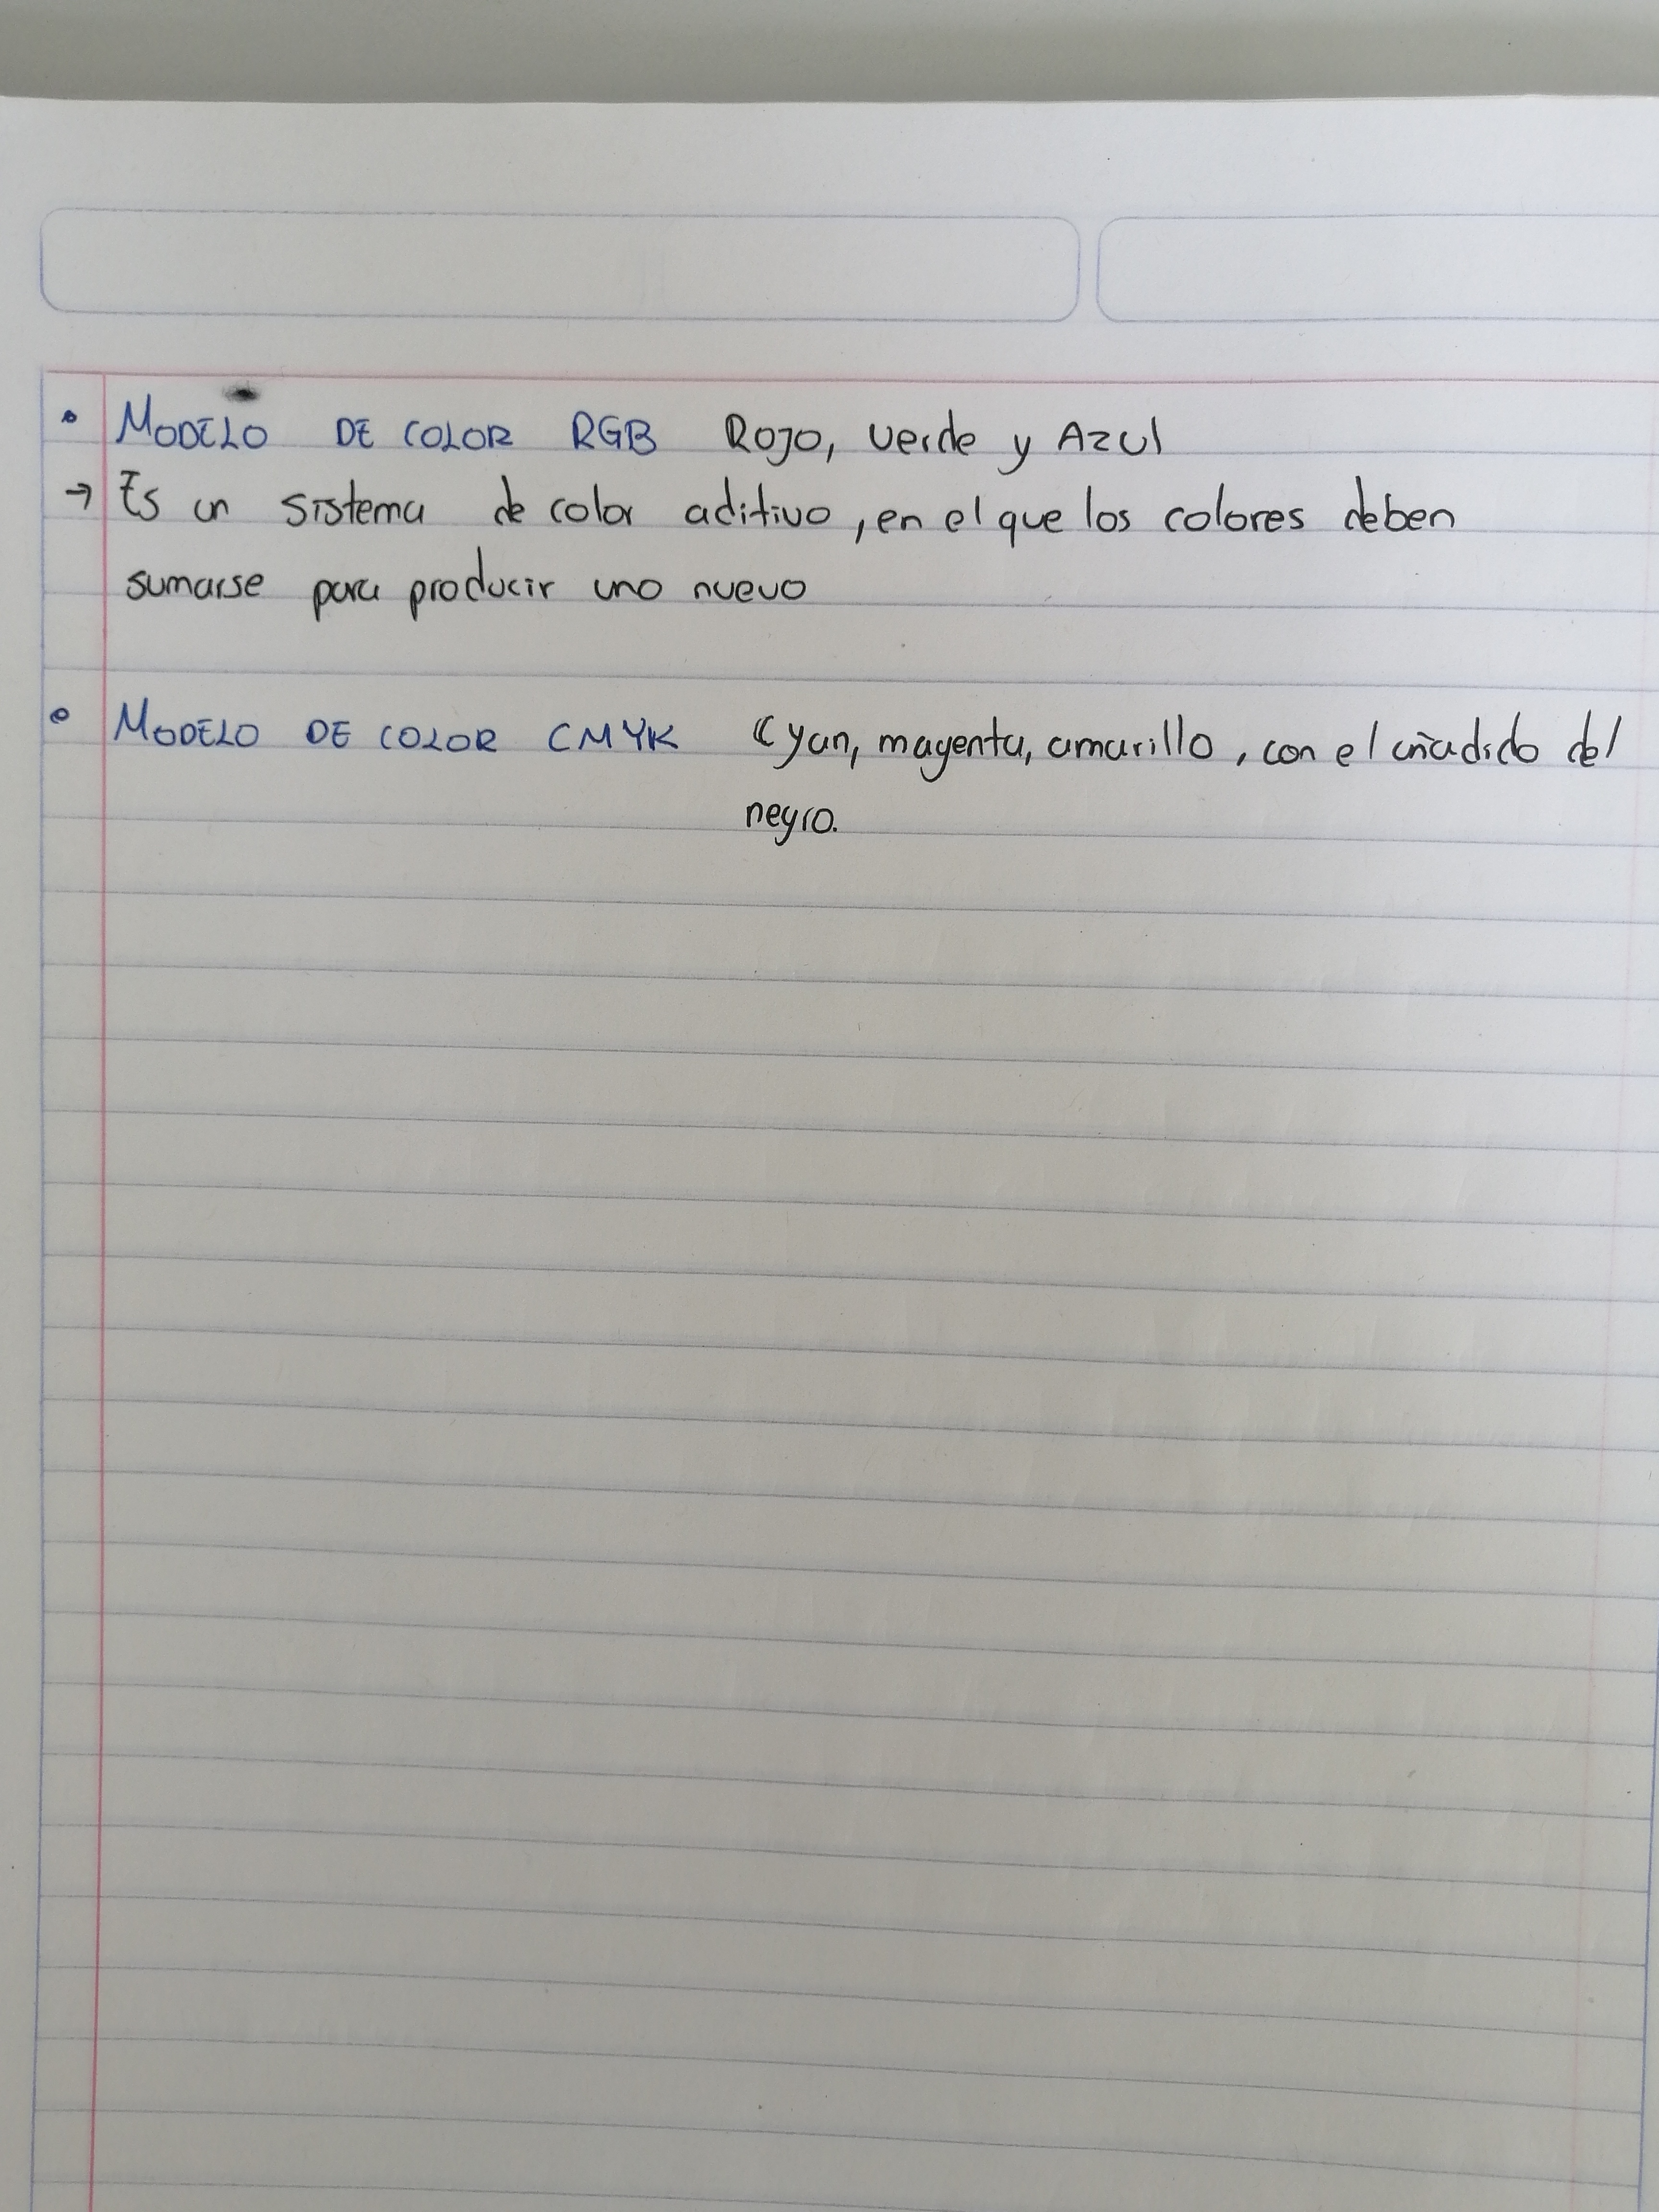 • MODELO DE COLOR RGB Rojo, verde y Azul
→ Es un sistema de color aditivo, en el que los colores deben
sumarse para producir uno nuevo
• MODELO DE COLOR CMYK Cyan, magenta, amarillo, con el añadido del
negro.